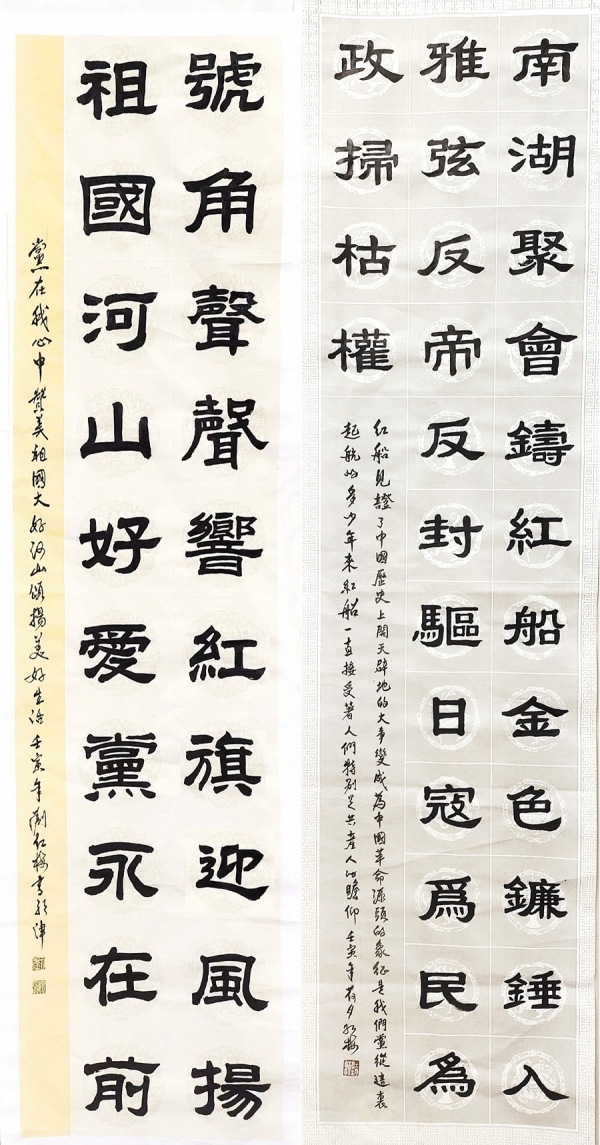 南湖聚會鑄紅船金色鐮錘入
雅弦反帝反封驅日寇爲民為
政掃枯權
红船見證了中國歷史上開天辟地的大事變成為中國革命源頭的象征是我們黨從這裏
起航的多少年来红船一直接受著人們特别是共產人的瞻仰 壬寅年荷月红梅
號角聲聲響紅旗迎風揚
祖國河山好愛黨永在前
黨在我心中贊美祖國大好河山頌揚美好生活 壬寅年劉红梅書於津